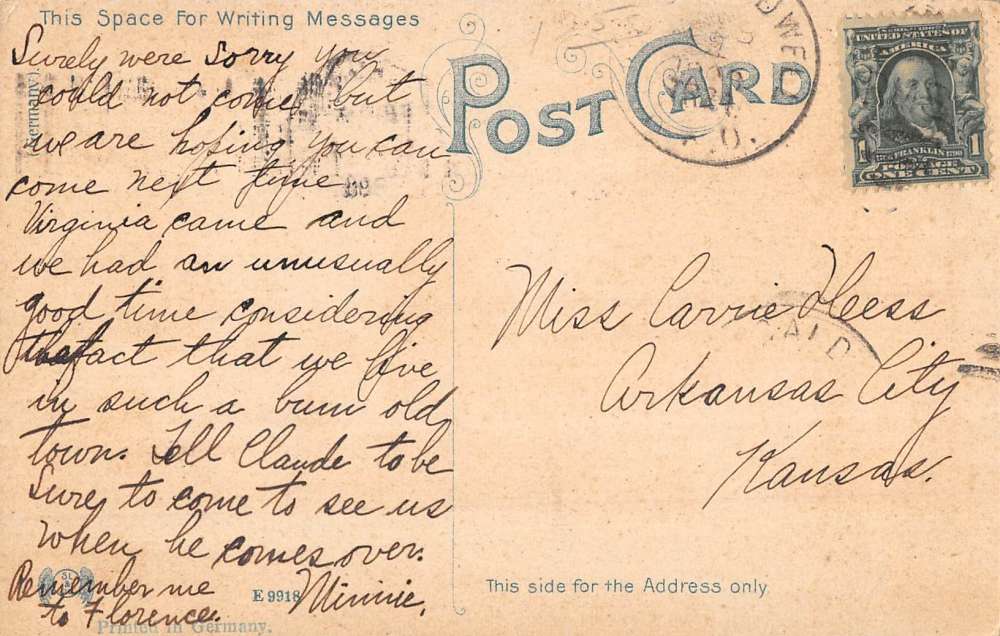 This Space For Writing Messages
Surely were sorry you
could not come, but
we are hoping you can
come next time.
Virginia came and
we had an unusually
good time considering
the fact that we live
in such a bum old
town. Tell Claude to be
sure to come to see us
when he comes over.
Remember me
to Florence.
Minnie.
E 9918
Printed in Germany.
(Germany).
POST CARD
UNITED STATES OF
AMERICA
1 FRANKLIN 1
POSTAGE
ONE CENT
Miss Carrie Heess
Arkansas City
Kansas.
This side for the Address only.